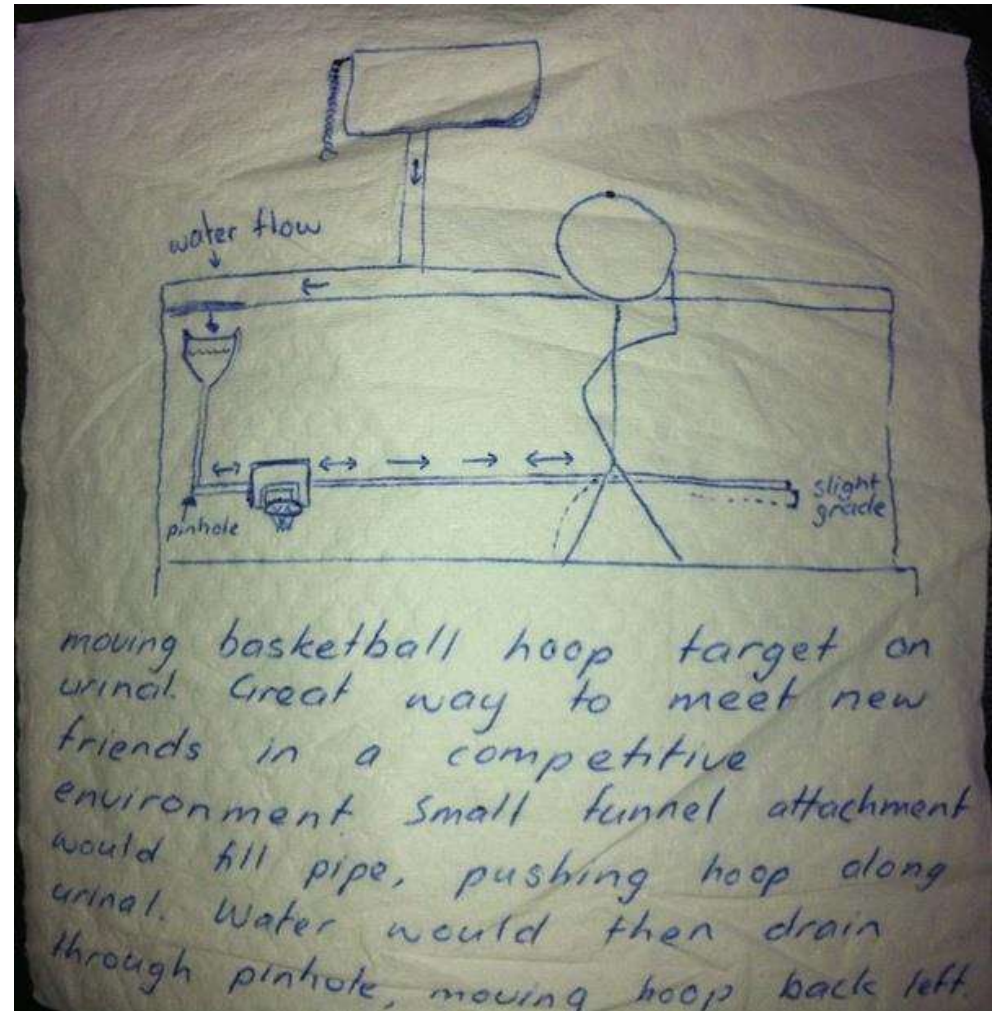 water flow
pinhole
slight
grade
moving basketball hoop target on
urinal. Great way to meet new
friends in a competitive
environment. Small funnel attachment
would fill pipe, pushing hoop along
urinal. Water would then drain
through pinhole, moving hoop back left.